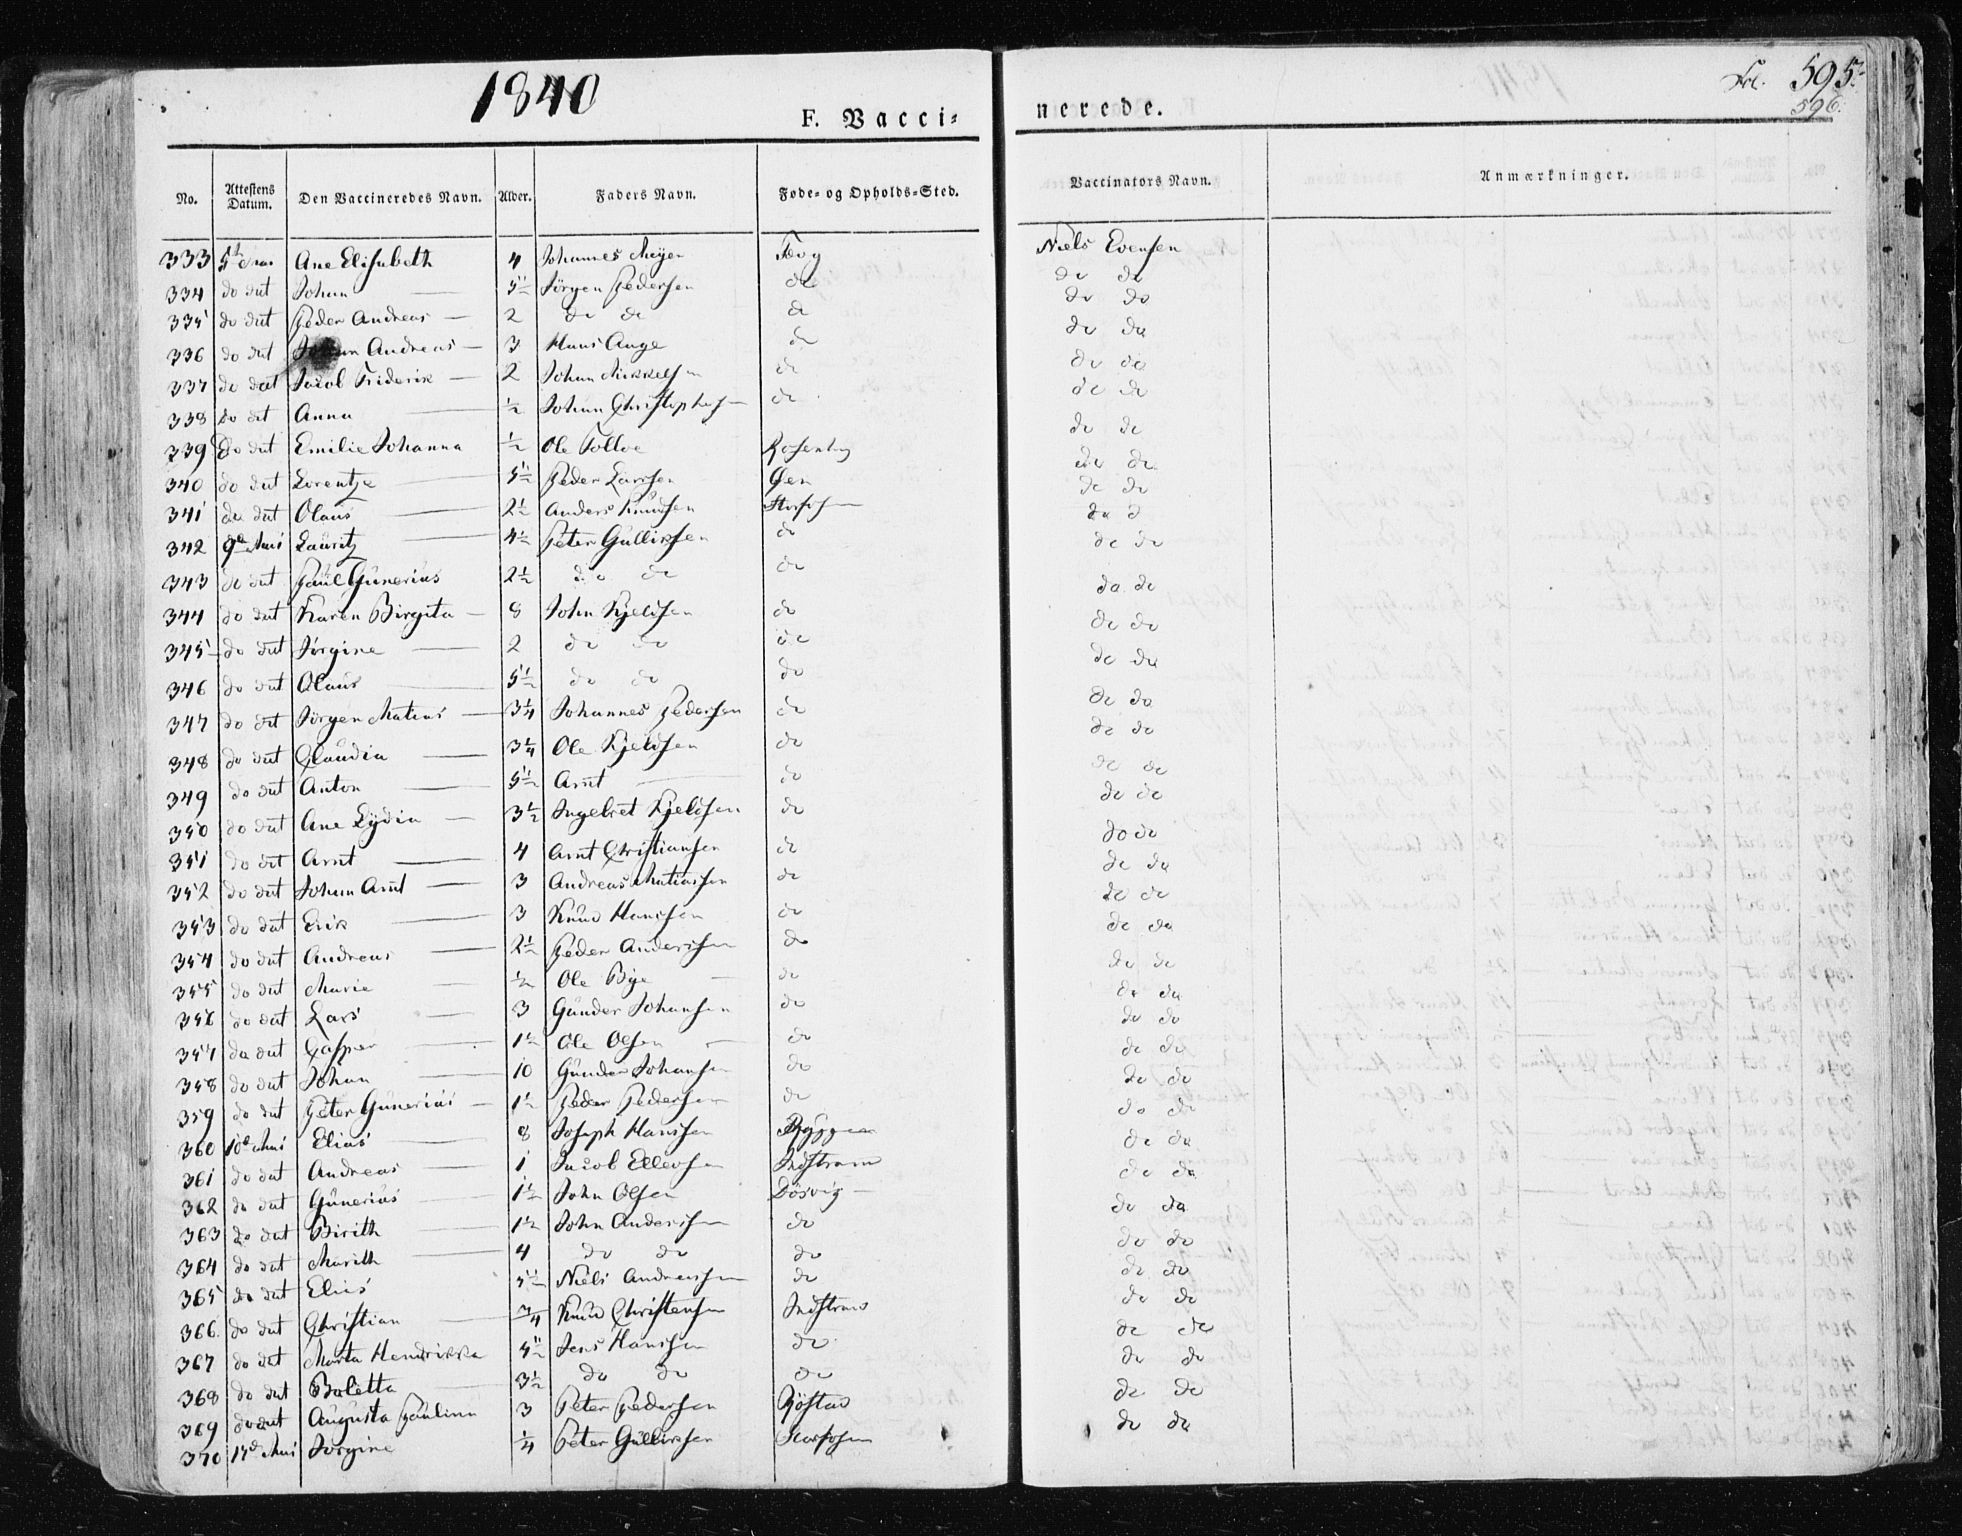 1840
F. Vacci-
nerede.
Fol. 595.
596.
No. Attestens Datum. Den Vaccineredes Navn. Alder. Faders Navn. Føde- og Opholds-Sted. Vaccinators Navn. Anmærkninger.
333 Ane Elisabeth 4 Johannes Meyer Niels Evensen
334 do dut Johan 5½ Jörgen Pedersen do do do
335 do dut Peder Andreas 2 do do do do do
336 do dut Johan Andreas 3 Hans Auge do do do
337 do dut Jacob Friderik 2 Johan Mikkelsen do do do
338 do dut Anna ½ Johan do do do
339 do dut Emilie Johanna ½ Ole do do
340 do dut Lorentze 5½ Peder Larssen Øen do do
341 do dut Olaus 2½ Anders Knudsen do do
342 9de Mai Lauritz 4½ Peter Gullicksen do do do
343 do dut Paul Gunerius 2½ do do do do do
344 do dut Karen Birgita 8 John Kjeldsen do do do
345 do dut Jörgine 2 do do do do do
346 do dut Olaus 5½ do do do do do
347 do dut Jörgen Matias 3¼ Johannes Pedersen do do do
348 do dut Claudia 3¼ Ole Kjeldsen do do do
349 do dut Anton 5½ Arnt do do do
350 do dut Ane Lydia 3½ Ingebret Kjeldsen do do do
351 do dut Arnt 4 Arnt Christiansen do do do
352 do dut Johan Arnt 3 Andreas Matiassen do do do
353 do dut Erik 3 Knud Hanssen do do do
354 do dut Andreas 2½ Peder Anderssen do do do
355 do dut Marie ½ Ole Bye do do do
356 do dut Lars 3 Gunder Johansen do do do
357 do dut Casper 1½ Ole Olsen do do do
358 do dut Johan 10 Gunder Johansen do do do
359 do dut Peter Gunerius 1½ Peder Pedersen do do do
360 10de Mai Elias 8 Joseph Hanssen do do
361 do dut Andreas 1 Jacob Ellevsen Indstrand do do
362 do dut Gunerius 1½ John Olsen Dösvig do do
363 do dut Birith 1½ John Anderssen do do do
364 do dut Marith 4 do do do do do
365 do dut Elias 5½ Niels Andreassen do do do
366 do dut Christian ¾ Knud Christensen Indstrand do do
367 do dut Marta Hendrikka 5½ Jens Hanssen do do do
368 do dut Boletta 3½ do do do do do
369 do dut Augusta Paulina 3 Peter Pedersen Röstad do do
370 Jörgine ¼ Peter Gullicksen do do